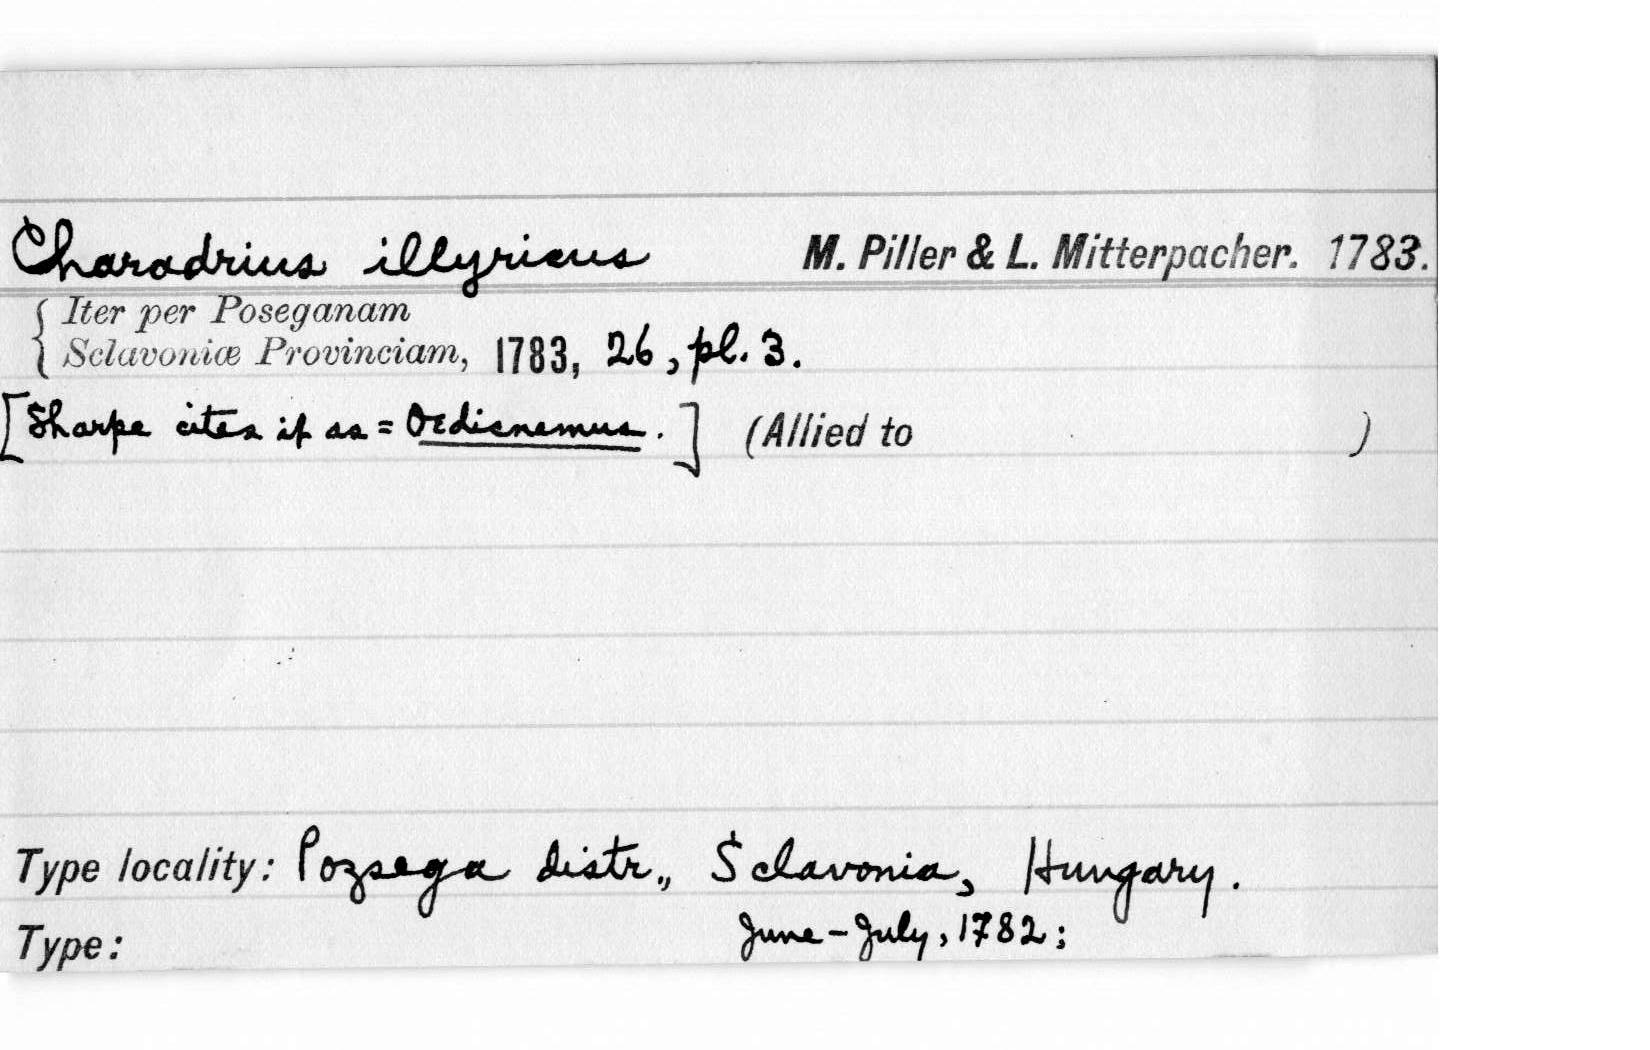 Charadrius illyricus M. Piller & L. Mitterpacher. 1783.
{ Iter per Poseganam
Sclavoniæ Provinciam, 1783, 26, pl. 3.
[Sharpe cites it as = Oedicnemus.] (Allied to )
Type locality: Pozsega distr., Sclavonia, Hungary.
Type: June - July, 1782;